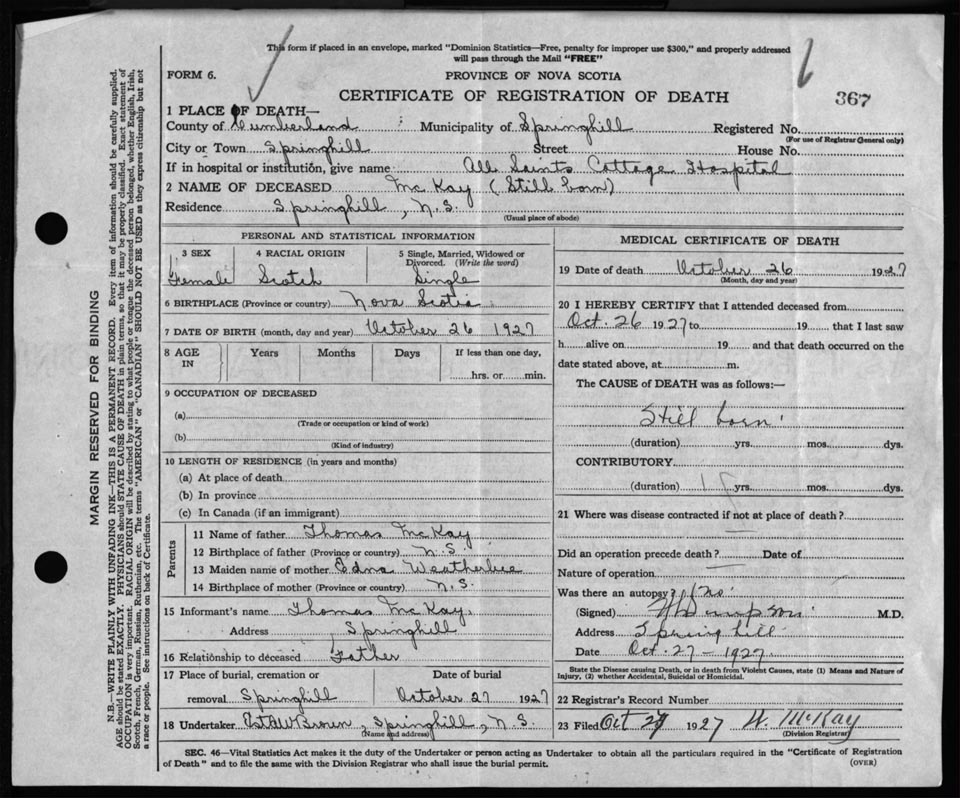 This form if placed in an envelope, marked "Dominion Statistics—Free, penalty for improper use $300," and properly addressed
will pass through the Mail "FREE"
FORM 6.
PROVINCE OF NOVA SCOTIA
CERTIFICATE OF REGISTRATION OF DEATH
367
1 PLACE OF DEATH—
County of Cumberland Municipality of Springhill Registered No.
(For use of Registrar General only)
City or Town Springhill Street House No.
If in hospital or institution, give name All Saints Cottage Hospital
2 NAME OF DECEASED McKay (Still born)
Residence Springhill, N.S.
(Usual place of abode)
PERSONAL AND STATISTICAL INFORMATION
3 SEX 4 RACIAL ORIGIN 5 Single, Married, Widowed or
Divorced. (Write the word)
Female Scotch Single
6 BIRTHPLACE (Province or country) Nova Scotia
7 DATE OF BIRTH (month, day and year) October 26 1927
8 AGE IN Years Months Days If less than one day,
hrs. or min.
9 OCCUPATION OF DECEASED
(a)
(Trade or occupation or kind of work)
(b)
(Kind of industry)
10 LENGTH OF RESIDENCE (in years and months)
(a) At place of death
(b) In province
(c) In Canada (if an immigrant)
Parents
11 Name of father Thomas McKay
12 Birthplace of father (Province or country) N.S.
13 Maiden name of mother Edna Weatherbee
14 Birthplace of mother (Province or country) N.S.
15 Informant's name Thomas McKay
Address Springhill
16 Relationship to deceased Father
17 Place of burial, cremation or Date of burial
removal Springhill October 27 1927
18 Undertaker Brown, Springhill, N.S.
(Name and address)
MEDICAL CERTIFICATE OF DEATH
19 Date of death October 26 1927
(Month, day and year)
20 I HEREBY CERTIFY that I attended deceased from
Oct. 26 1927 to 19 that I last saw
h alive on 19 and that death occurred on the
date stated above, at m.
The CAUSE of DEATH was as follows:—
Still born
(duration) yrs. mos. dys.
CONTRIBUTORY
(duration) yrs. mos. dys.
21 Where was disease contracted if not at place of death?
Did an operation precede death? Date of
Nature of operation
Was there an autopsy? No
(Signed) M.D.
Address Springhill
Date Oct-27-1927
State the Disease causing Death, or in death from Violent Causes, state (1) Means and Nature of
Injury, (2) whether Accidental, Suicidal or Homicidal.
22 Registrar's Record Number
23 Filed Oct 1927 McKay
(Division Registrar)
SEC. 46—Vital Statistics Act makes it the duty of the Undertaker or person acting as Undertaker to obtain all the particulars required in the "Certificate of Registration
of Death" and to file the same with the Division Registrar who shall issue the burial permit.
(OVER)
MARGIN RESERVED FOR BINDING
N.B.—WRITE PLAINLY WITH UNFADING INK—THIS IS A PERMANENT RECORD. Every item of information should be carefully supplied.
AGE should be stated EXACTLY. PHYSICIANS should STATE CAUSE OF DEATH in plain terms, so that it may be properly classified. Exact statement of
OCCUPATION is very important. RACIAL ORIGIN will be described by stating to what people or tongue the deceased person belonged, whether English, Irish,
Scotch, French, German, Russian, Ruthenian, etc. The terms "AMERICAN" or "CANADIAN" SHOULD NOT BE USED as they express citizenship but not
a race or people. See instructions on back of Certificate.